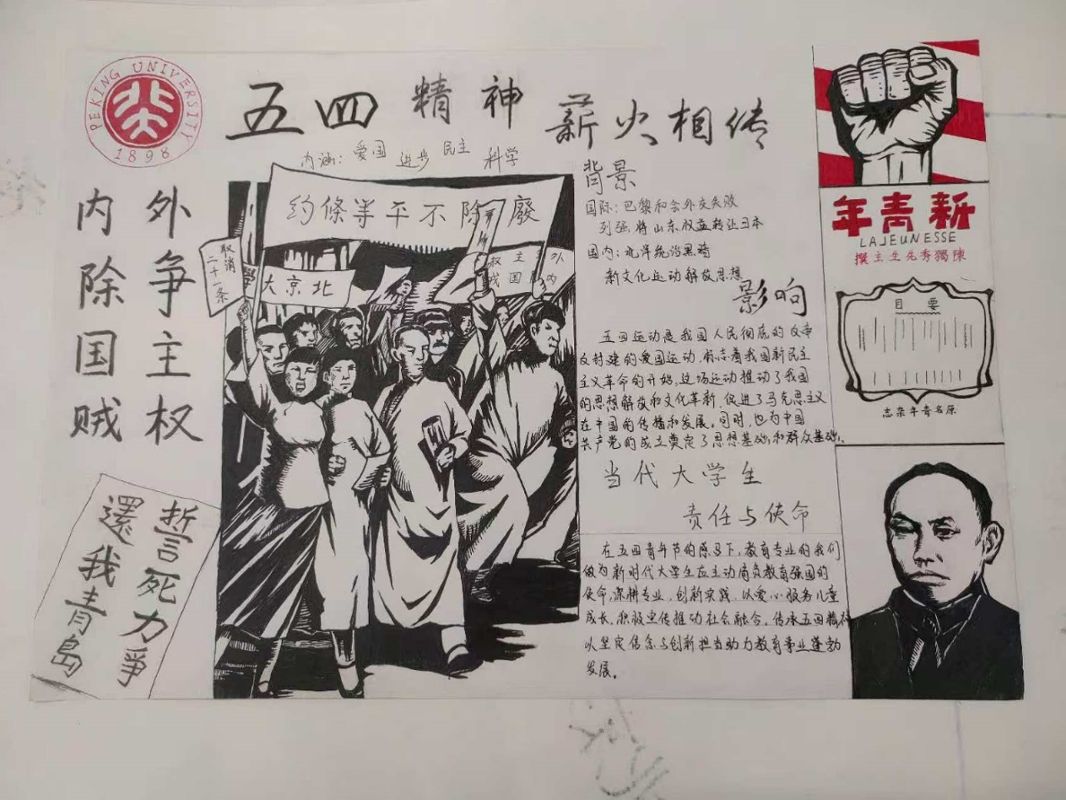 PEKING UNIVERSITY
1898
五四精神 薪火相传
内涵：爱国 进步 民主 科学
外争主权
内除国贼
誓死力爭
還我青島
廢除不平等條約
取消
二十一条
北京大
外
主
权
内
国
我
背景
国际：巴黎和会外交失败
列强将山东权益转让日本
国内：北洋统治黑暗
新文化运动解放思想
影响
五四运动是我国人民彻底的反帝
反封建的爱国运动，标志着我国新民主
主义革命的开始，这场运动推动了我国
的思想解放和文化革新，促进了马克思主义
在中国的传播和发展。同时，也为中国
共产党的成立奠定了思想基础和群众基础。
当代大学生
责任与使命
在五四青年节的感召下，教育专业的我们
做为新时代大学生应主动肩负教育强国的
使命，深耕专业，创新实践，以爱心服务儿童
成长，积极宣传推动社会融合。传承五四精神
以坚定信念与创新担当助力教育事业蓬勃
发展。
新青年
LAJEUNESSE
陳獨秀先生主撰
要目
原名青年杂志